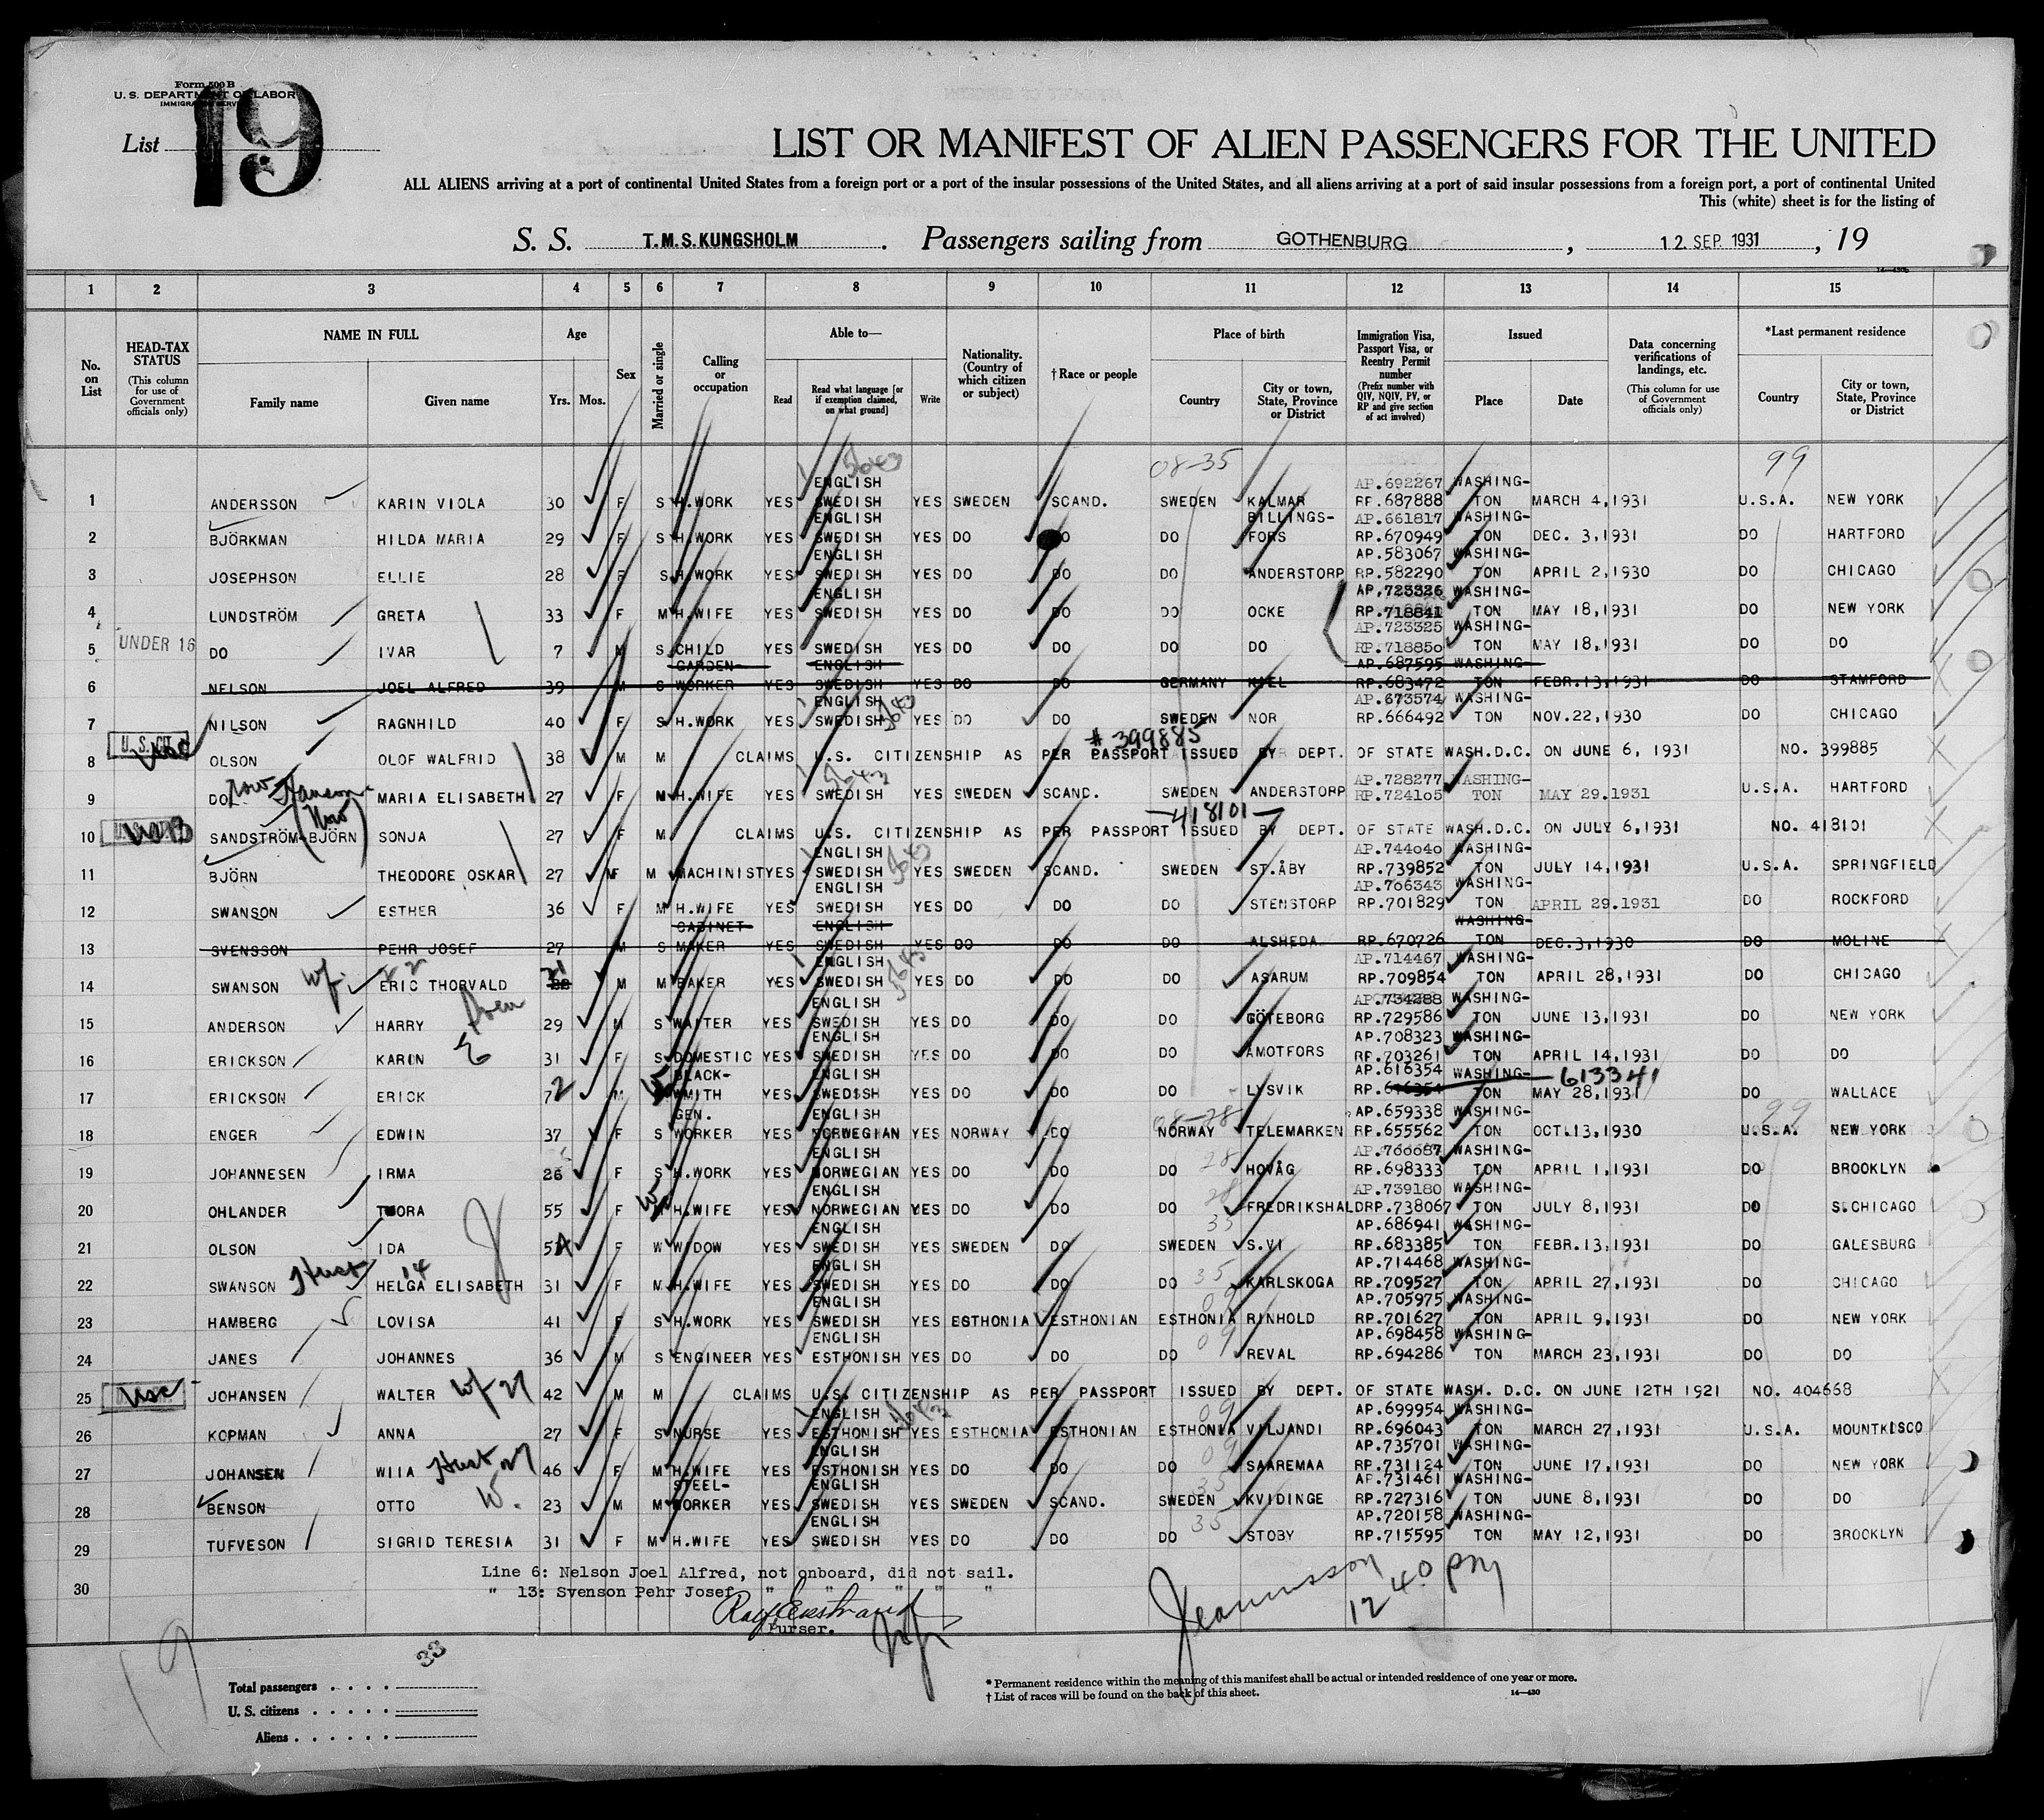 Form 500 B
U. S. DEPARTMENT OF LABOR
IMMIGRATION SERVICE
List 19
LIST OR MANIFEST OF ALIEN PASSENGERS FOR THE UNITED
ALL ALIENS arriving at a port of continental United States from a foreign port or a port of the insular possessions of the United States, and all aliens arriving at a port of said insular possessions from a foreign port, a port of continental United
This (white) sheet is for the listing of
S. S. T.M.S.KUNGSHOLM . Passengers sailing from GOTHENBURG , 12 SEP. 1931 , 19
1 2 3 4 5 6 7 8 9 10 11 12 13 14 15
No. on List
HEAD-TAX STATUS (This column for use of Government officials only)
NAME IN FULL Family name Given name
Age Yrs. Mos.
Sex
Married or single
Calling or occupation
Able to— Read Read what language [or if exemption claimed, on what ground] Write
Nationality. (Country of which citizen or subject)
†Race or people
Place of birth Country City or town, State, Province or District
Immigration Visa, Passport Visa, or Reentry Permit number (Prefix number with QIV, NQIV, PV, or RP and give section of act involved)
Issued Place Date
Data concerning verifications of landings, etc. (This column for use of Government officials only)
*Last permanent residence Country City or town, State, Province or District
08-35 99
ENGLISH AP.692267 WASHING-
1 ANDERSSON KARIN VIOLA 30 F S H.WORK YES SWEDISH YES SWEDEN SCAND. SWEDEN KALMAR RP.687888 TON MARCH 4,1931 U.S.A. NEW YORK
ENGLISH BILLINGS- AP.661817 WASHING-
2 BJÖRKMAN HILDA MARIA 29 F S H.WORK YES SWEDISH YES DO DO DO FORS RP.670949 TON DEC. 3,1931 DO HARTFORD
ENGLISH AP.583067 WASHING-
3 JOSEPHSON ELLIE 28 F S H.WORK YES SWEDISH YES DO DO DO ANDERSTORP RP.582290 TON APRIL 2,1930 DO CHICAGO
ENGLISH AP.723326 WASHING-
4 LUNDSTRÖM GRETA 33 F M H.WIFE YES SWEDISH YES DO DO DO OCKE RP.718841 TON MAY 18,1931 DO NEW YORK
AP.723325 WASHING-
5 UNDER 16 DO IVAR 7 M S CHILD YES SWEDISH YES DO DO DO DO RP.718850 TON MAY 18,1931 DO DO
GARDEN- ENGLISH AP.687595 WASHING-
6 NELSON JOEL ALFRED 39 M S WORKER YES SWEDISH YES DO DO GERMANY KIEL RP.683472 TON FEBR.13,1931 DO STAMFORD
ENGLISH AP.673574 WASHING-
7 NILSON RAGNHILD 40 F S H.WORK YES SWEDISH YES DO DO SWEDEN NOR RP.666492 TON NOV.22,1930 DO CHICAGO
# 399885
8 U.S.CIT. usc OLSON OLOF WALFRID 38 M M CLAIMS U.S. CITIZENSHIP AS PER PASSPORT ISSUED BY DEPT. OF STATE WASH.D.C. ON JUNE 6, 1931 NO. 399885
AP.728277 WASHING-
9 DO MARIA ELISABETH 27 F M H.WIFE YES SWEDISH YES SWEDEN SCAND. SWEDEN ANDERSTORP RP.724105 TON MAY 29.1931 U.S.A. HARTFORD
(Now) —418101—
10 SANDSTRÖM-BJÖRN SONJA 27 F M CLAIMS U.S. CITIZENSHIP AS PER PASSPORT ISSUED BY DEPT. OF STATE WASH.D.C. ON JULY 6,1931 NO. 418101
ENGLISH AP.744040 WASHING-
11 BJÖRN THEODORE OSKAR 27 M M MACHINIST YES SWEDISH YES SWEDEN SCAND. SWEDEN ST.ÅBY RP.739852 TON JULY 14,1931 U.S.A. SPRINGFIELD
ENGLISH AP.706343 WASHING-
12 SWANSON ESTHER 36 F M H.WIFE YES SWEDISH YES DO DO DO STENSTORP RP.701829 TON APRIL 29.1931 DO ROCKFORD
CABINET- ENGLISH WASHING-
13 SVENSSON PEHR JOSEF 27 M S MAKER YES SWEDISH YES DO DO DO ALSHEDA RP.670726 TON DEC.3,1930 DO MOLINE
ENGLISH AP.714467 WASHING-
14 SWANSON wf. 22 ERIC THORVALD 31 M M BAKER YES SWEDISH YES DO DO DO ASARUM RP.709854 TON APRIL 28,1931 DO CHICAGO
ENGLISH AP.734288 WASHING-
15 ANDERSON HARRY 29 M S WAITER YES SWEDISH YES DO DO DO GÖTEBORG RP.729586 TON JUNE 13,1931 DO NEW YORK
ENGLISH AP.708323 WASHING-
16 ERICKSON KARIN E 31 F S DOMESTIC YES SWEDISH YES DO DO DO AMOTFORS RP.703261 TON APRIL 14,1931 DO DO
BLACK- ENGLISH AP.616354 WASHING- 613341
17 ERICKSON ERICK 72 M W SMITH YES SWEDISH YES DO DO DO LYSVIK RP.616354 TON MAY 28,1931 DO WALLACE
GEN. ENGLISH 08-28 AP.659338 WASHING- 99
18 ENGER EDWIN 37 F S WORKER YES NORWEGIAN YES NORWAY DO NORWAY TELEMARKEN RP.655562 TON OCT.13,1930 U.S.A. NEW YORK
ENGLISH AP.766687 WASHING-
19 JOHANNESEN IRMA 26 F S H.WORK YES NORWEGIAN YES DO DO DO 28 HOVÅG RP.698333 TON APRIL 1,1931 DO BROOKLYN
ENGLISH AP.739180 WASHING-
20 OHLANDER THORA 55 F W H.WIFE YES NORWEGIAN YES DO DO DO 28 FREDRIKSHALD RP.738067 TON JULY 8,1931 DO S.CHICAGO
ENGLISH 35 AP.686941 WASHING-
21 OLSON IDA 51 F W WIDOW YES SWEDISH YES SWEDEN DO SWEDEN S.VI RP.683385 TON FEBR.13,1931 DO GALESBURG
ENGLISH AP.714468 WASHING-
22 SWANSON Hust 14 HELGA ELISABETH 31 F M H.WIFE YES SWEDISH YES DO DO DO 35 KARLSKOGA RP.709527 TON APRIL 27,1931 DO CHICAGO
ENGLISH 09 AP.705975 WASHING-
23 HAMBERG LOVISA 41 F S H.WORK YES SWEDISH YES ESTHONIA ESTHONIAN ESTHONIA RINHOLD RP.701627 TON APRIL 9,1931 DO NEW YORK
ENGLISH 09 AP.698458 WASHING-
24 JANES JOHANNES 36 M S ENGINEER YES ESTHONISH YES DO DO DO REVAL RP.694286 TON MARCH 23,1931 DO DO
25 usc JOHANSEN WALTER wf 27 42 M M CLAIMS U.S. CITIZENSHIP AS PER PASSPORT ISSUED BY DEPT. OF STATE WASH. D.C. ON JUNE 12TH 1921 NO. 404668
ENGLISH 09 AP.699954 WASHING-
26 KOPMAN ANNA 27 F S NURSE YES ESTHONISH YES ESTHONIA ESTHONIAN ESTHONIA VILJANDI RP.696043 TON MARCH 27,1931 U.S.A. MOUNTKISCO
ENGLISH 09 AP.735701 WASHING-
27 JOHANSEN WIIA Hust 27 46 F M H.WIFE YES ESTHONISH YES DO DO DO SAAREMAA RP.731124 TON JUNE 17,1931 DO NEW YORK
STEEL- ENGLISH 35 AP.731461 WASHING-
28 BENSON OTTO W. 23 M M WORKER YES SWEDISH YES SWEDEN SCAND. SWEDEN KVIDINGE RP.727316 TON JUNE 8,1931 DO DO
ENGLISH 35 AP.720158 WASHING-
29 TUFVESON SIGRID TERESIA 31 F M H.WIFE YES SWEDISH YES DO DO DO STOBY RP.715595 TON MAY 12,1931 DO BROOKLYN
Line 6: Nelson Joel Alfred, not onboard, did not sail.
30 " 13: Svenson Pehr Josef, " " " " "
Purser.
12 40 pm
19 33
Total passengers
U. S. citizens
Aliens
* Permanent residence within the meaning of this manifest shall be actual or intended residence of one year or more.
† List of races will be found on the back of this sheet.
14—430